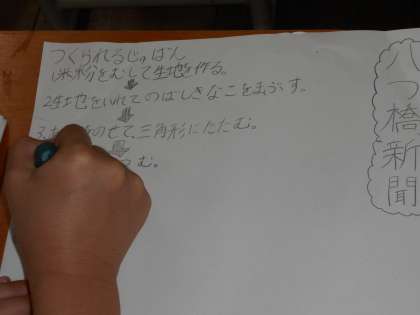 八つ橋新聞
つくられるじゅんばん
1米粉をむして生地を作る。
2生地をいれてのばしきなこをまぶす。
のせて、三角形にたたむ。
む。